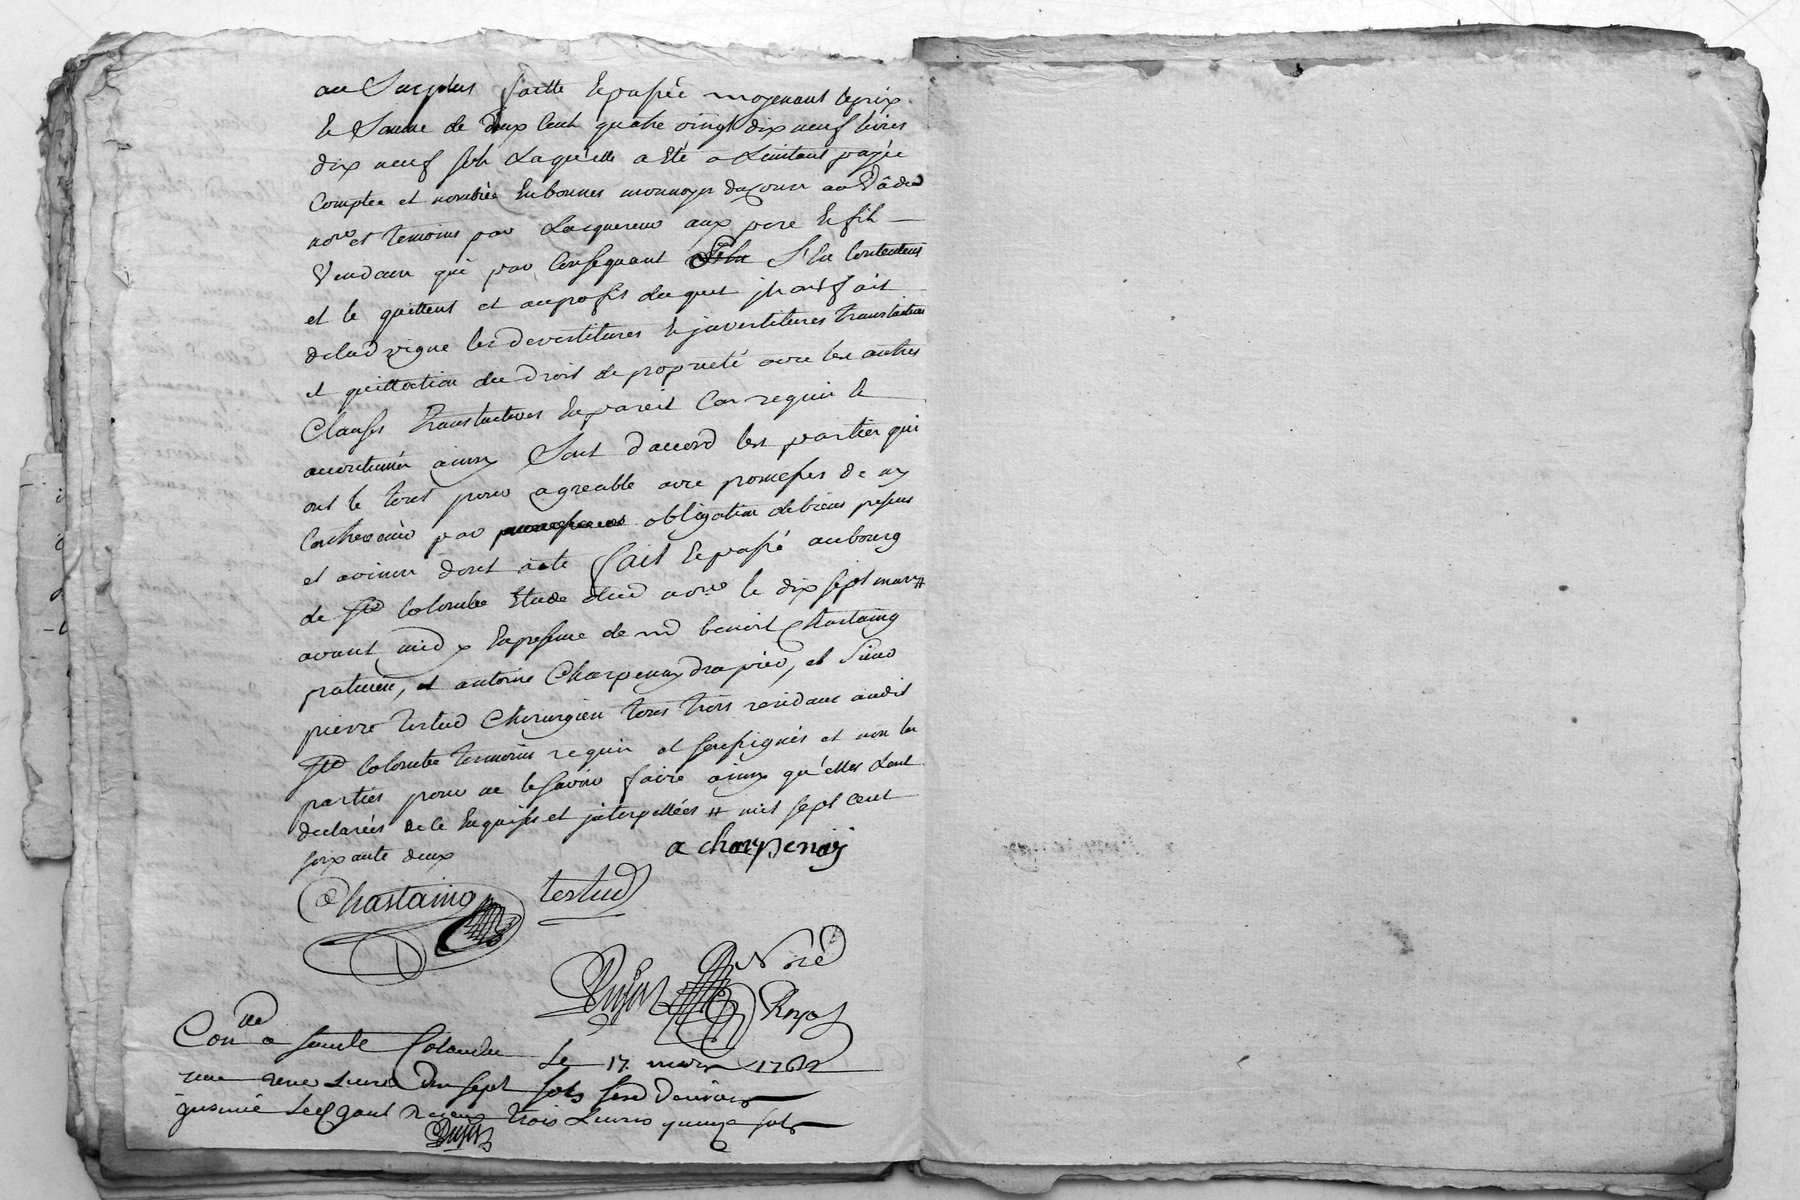 au Surplus faitte & passée moyenant le prix
& Somme de deux Cent quatre vingt dix neuf livres
dix neuf sols Laquelle a Eté a Linstant payée
Comptée et nombrée En bonnes monnoyes du Cours au Vû du
nore et temoins par Lacquereur aux pere & fils
Vendeurs qui par Consequant S'En Contentent
et le quittent et au profit duquel jls ont fait
de lad vigne les devestitures & jnvestitures translation
et quittation du droit de proprieté avec les autres
Clauses translatives En pareil Cas requis &
accoutumés ainsy Sont d'accord les parties qui
ont le tout pour agreable avec promesses de ny
Contrevenir par obligation de biens presens
et avenir dont acte fait & passé au bourg
de Ste Colombe Etude dud nore le dix sept mars #
avant midy En presence de benoit Chastaing
praticien, et antoine Charpenay drapier, et Sieur
pierre testud Chirurgien tous trois residans audit
Ste Colombe temoins requis et soussignés et non les
parties pour ne le savoir faire ainsy qu'elles L'ont
declarées de ce Enquises et jnterpellées # mil sept cent
soixante deux
a charpenay
Chastaing testud
Dujast Nre
Royal
Con a Sainte Colombe Le 17. mars 1762
une Livre dix sept sols
trois Livres quinze sols
Dujast